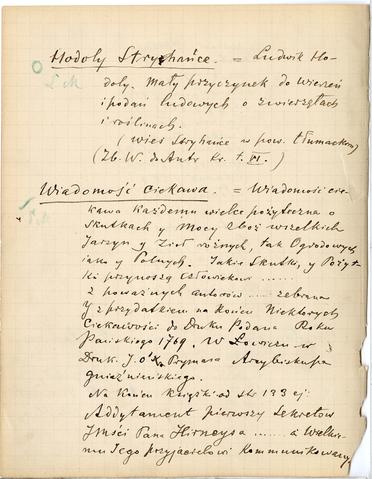 Hodoly Stryhańce. = Ludwik Ho-
doly. Mały przyczynek do wierzeń
i podań ludowych o zwierzętach
i roślinach.
(wieś Stryhańce w pow. tłumackim)
(Zb. W. do Antr. Kr. t. VI.)
Wiadomość Ciekawa. = Wiadomość cie-
kawa Każdemu wielce pożyteczna o
Skutkach y Mocy Zboż wszelkich
Jarzyn y Zioł rożnych, tak Ogrodowych
iako y Polnych. Jakie Skutki, y Pożyt-
ki przynoszą człowiekow .....
z poważnych autorow ..... zebrana
y z przydatkiem na Końcu Niektorych
Ciekawości do Druku Podana Roku
Pańskiego 1769. W Łowiczu w
Druk. J. O. Xa Prymasa Arcybiskupa
Gnieźnieńskiego.
Na Końcu Książki od str 133 ej:
Addytament pierwszy Sekretow
Jmści Pana Hirneysa ....... á Wielkie-
mu Jego przyjacielowi Kommunikowany